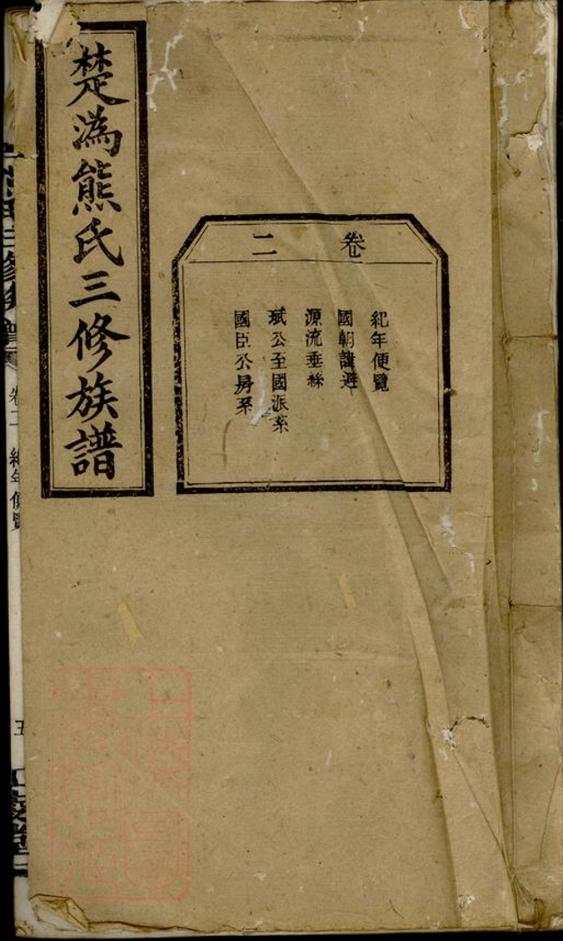 楚溈熊氏三修族譜
卷二
紀年便覽
國朝諱避
源流垂絲
珷公至國派系
國臣公房系